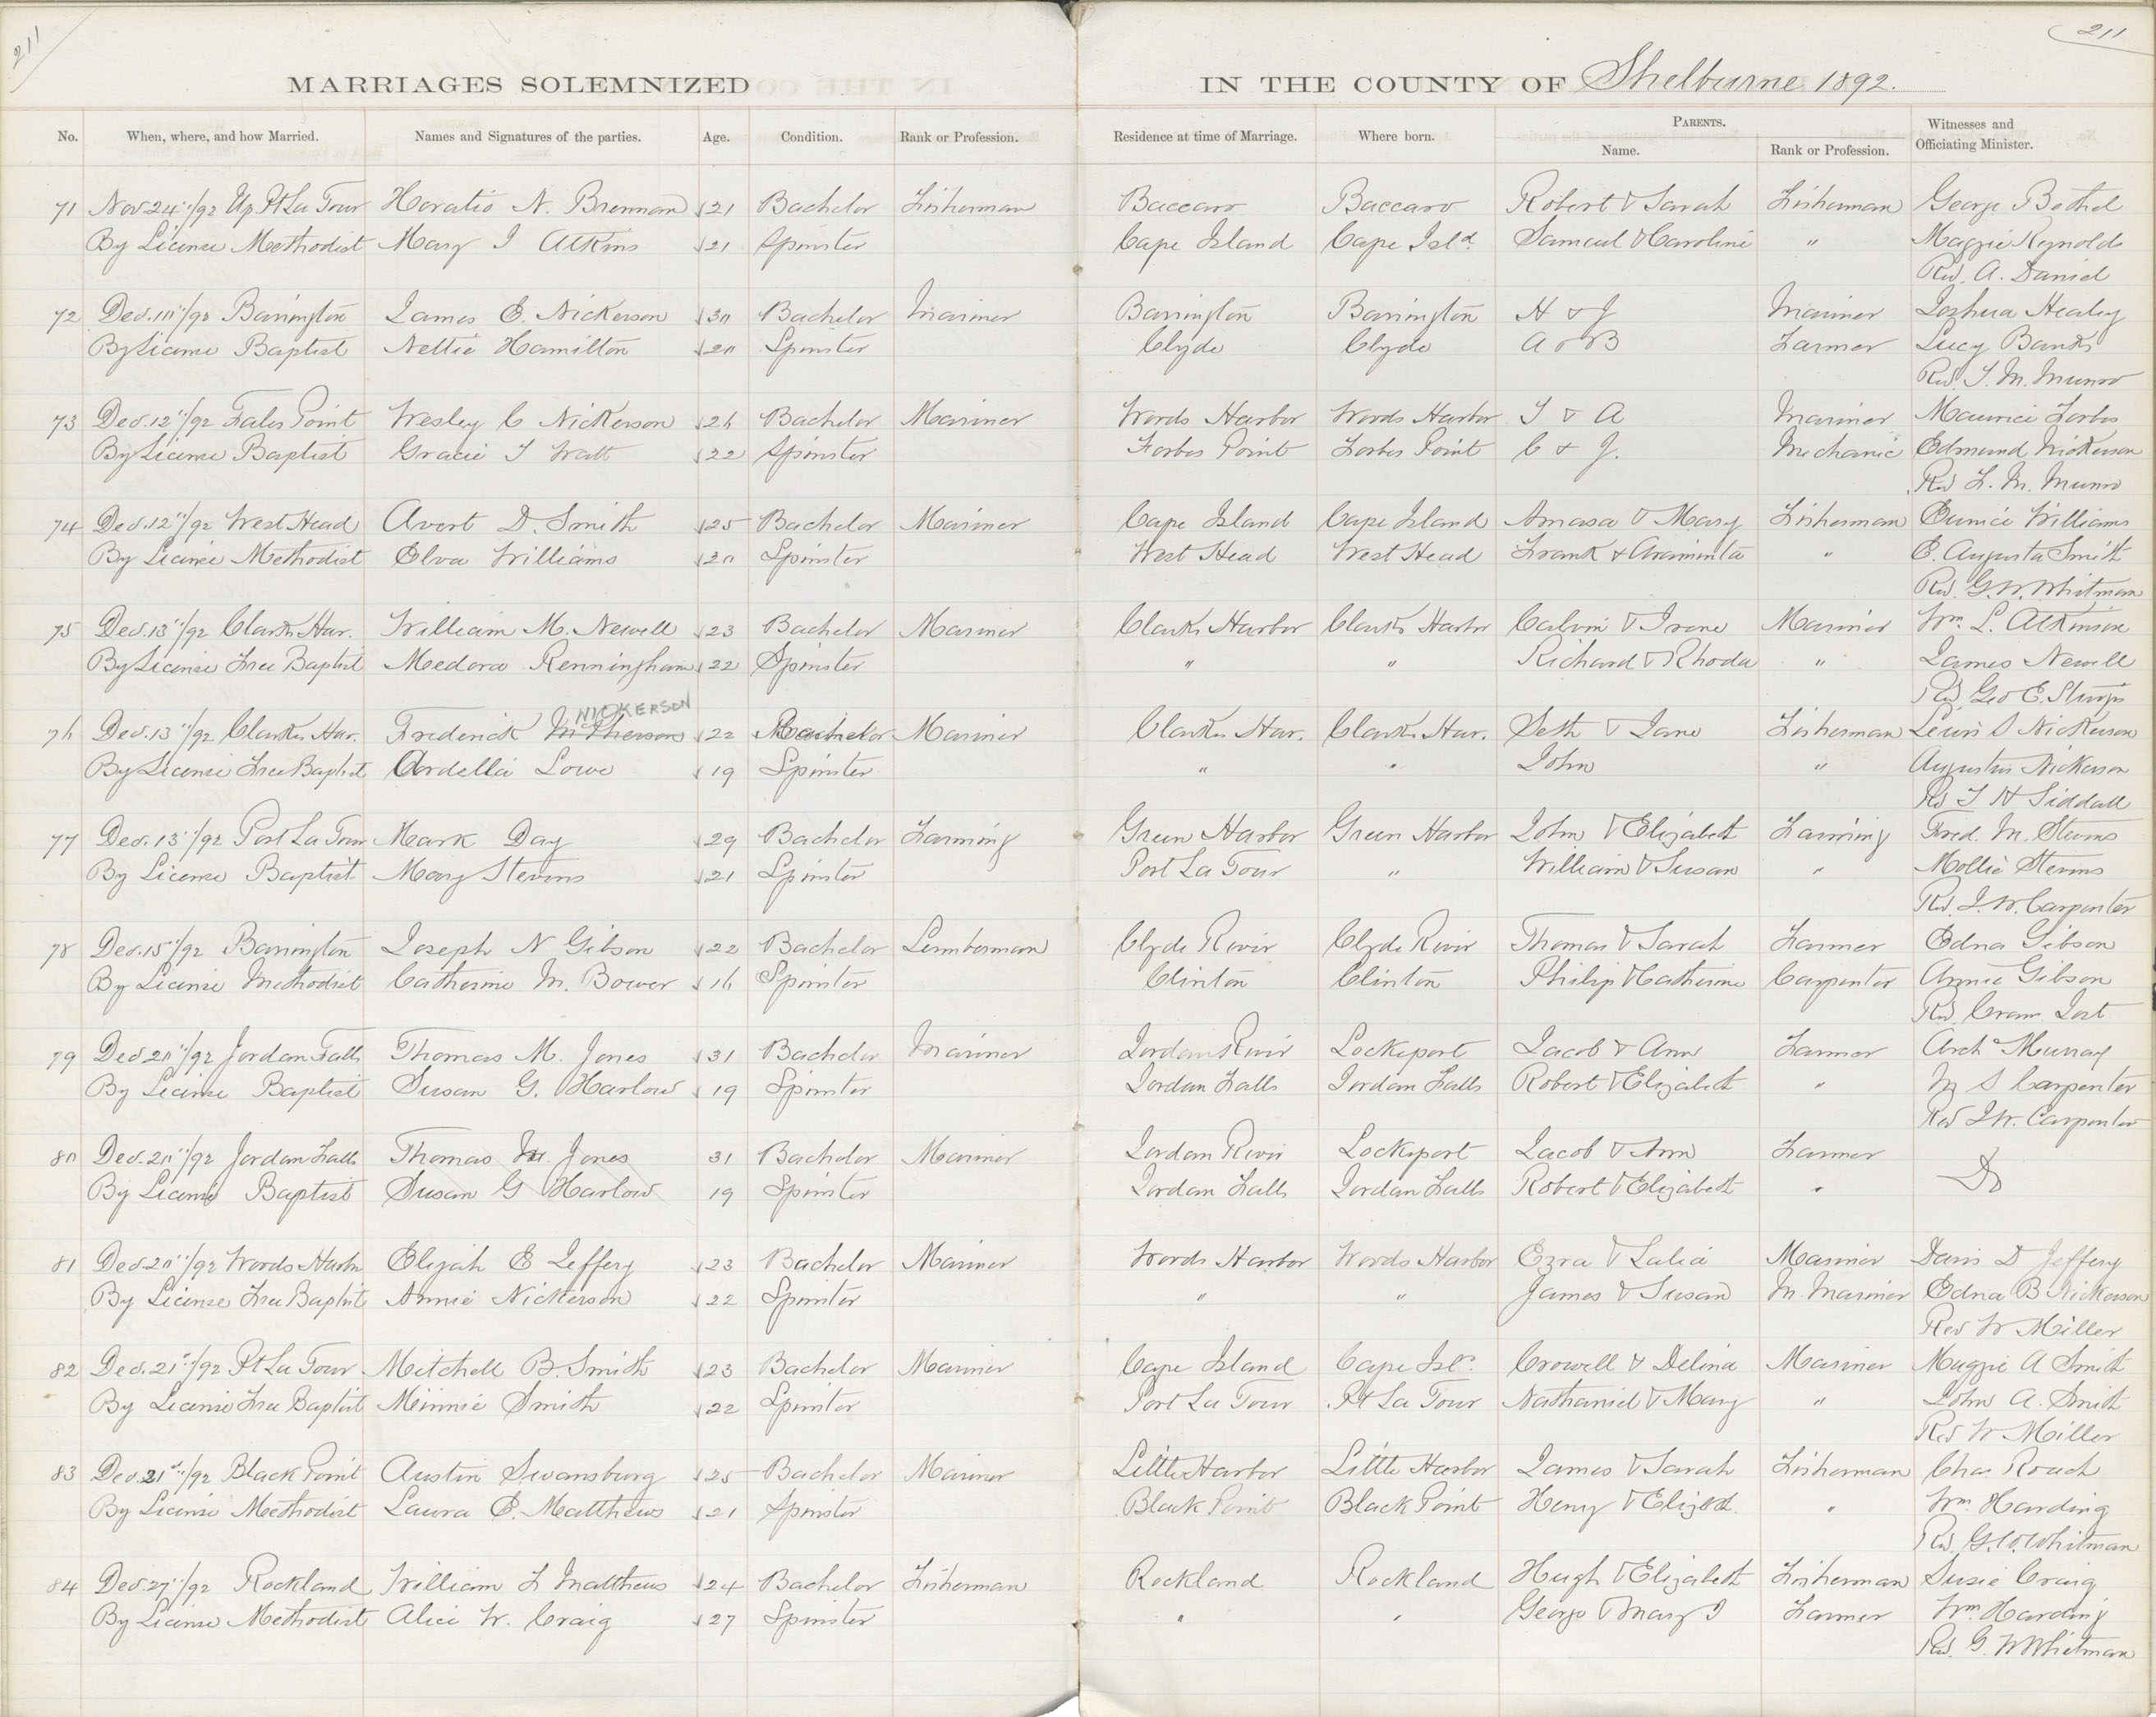 211
211
MARRIAGES SOLEMNIZED IN THE COUNTY OF Shelburne 1892.
No. When, where, and how Married. Names and Signatures of the parties. Age. Condition. Rank or Profession. Residence at time of Marriage. Where born. PARENTS. Witnesses and
Name. Rank or Profession. Officiating Minister.
71 Nov. 24"/92 Up. Pt La Tour Horatio N. Brennan 21 Bachelor Fisherman Baccaro Baccaro Robert & Sarah Fisherman George Bethel
By License Methodist Mary J Atkins 21 Spinster Cape Island Cape Isld. Samuel & Caroline " Maggie Reynolds
Rev. A. Daniel
72 Dec. 10"/92 Barrington James E. Nickerson 30 Bachelor Mariner Barrington Barrington H & J Mariner Joshua Healey
By License Baptist Nettie Hamilton 20 Spinster Clyde Clyde A & B Farmer Lucy Banks
Rev. T. M. Munro
73 Dec. 12"/92 Fales Point Wesley C Nickerson 26 Bachelor Mariner Woods Harbor Woods Harbor T & A Mariner Maurice Forbes
By License Baptist Gracie T Watt 22 Spinster Forbes Point Forbes Point C & J. Mechanic Edmund Nickerson
Rev. T. M. Munro
74 Dec. 12"/92 West Head Avert D. Smith 25 Bachelor Mariner Cape Island Cape Island Amasa & Mary Fisherman Eunice Williams
By License Methodist Elva Williams 20 Spinster West Head West Head Frank & Araminta " E. Augusta Smith
Rev. G. W. Whitman
75 Dec. 13"/92 Clarks Har. William M. Newell 23 Bachelor Mariner Clarks Harbor Clarks Harbor Calvin & Irene Mariner Wm. L. Atkinson
By License Free Baptist Medora Kenningham 22 Spinster " " Richard & Rhoda " James Newell
Rev. Geo E. Sturgis
NICKERSON
76 Dec. 13"/92 Clarks Har. Frederick McPherson 22 Bachelor Mariner Clarks Har. Clarks Har. Seth & Jane Fisherman Lewis S Nickerson
By License Free Baptist Ordella Lowe 19 Spinster " " John " Augustus Nickerson
Rev T H Siddall
77 Dec. 13"/92 Port La Tour Mark Day 29 Bachelor Farming Green Harbor Green Harbor John & Elizabeth Farming Fred. M. Stevens
By License Baptist Mary Stevens 21 Spinster Port La Tour " William & Susan " Mollie Stevens
Rev. J. W. Carpenter
78 Dec. 15"/92 Barrington Joseph N Gibson 22 Bachelor Lumberman Clyde River Clyde River Thomas & Sarah Farmer Edna Gibson
By License Methodist Catherine M. Bower 16 Spinster Clinton Clinton Philip & Catherine Carpenter Annie Gibson
Rev. Jost
79 Dec 20"/92 Jordan Falls Thomas M. Jones 31 Bachelor Mariner Jordan River Lockeport Jacob & Ann Farmer Arch Murray
By License Baptist Susan G. Harlow 19 Spinster Jordan Falls Jordan Falls Robert & Elizabeth " M S Carpenter
Rev J W. Carpenter
80 Dec. 20"/92 Jordan Falls Thomas M. Jones 31 Bachelor Mariner Jordan River Lockeport Jacob & Ann Farmer Do
By License Baptist Susan G Harlow 19 Spinster Jordan Falls Jordan Falls Robert & Elizabeth "
81 Dec. 20"/92 Woods Harbor Elijah E Jeffery 23 Bachelor Mariner Woods Harbor Woods Harbor Ezra & Lalia Mariner Davis D Jeffery
By License Free Baptist Annie Nickerson 22 Spinster " " James & Susan M. Mariner Edna B Nickerson
Rev W Miller
82 Dec. 21"/92 Pt La Tour Mitchell B. Smith 23 Bachelor Mariner Cape Island Cape Isld. Crowell & Delina Mariner Maggie A Smith
By License Free Baptist Minnie Smith 22 Spinster Port La Tour Pt La Tour Nathaniel & Mary " John A. Smith
Rev W Miller
83 Dec. 21"/92 Black Point Austin Swansburg 25 Bachelor Mariner Little Harbor Little Harbor James & Sarah Fisherman Chas Roach
By License Methodist Laura E. Matthews 21 Spinster Black Point Black Point Henry & Elizbth. " Wm. Harding
Rev. G. W. Whitman
84 Dec. 27"/92 Rockland William F Matthews 24 Bachelor Fisherman Rockland Rockland Hugh & Elizabeth Fisherman Susie Craig
By License Methodist Alice W. Craig 27 Spinster " " George & Mary J Farmer Wm. Harding
Rev. G. W Whitman